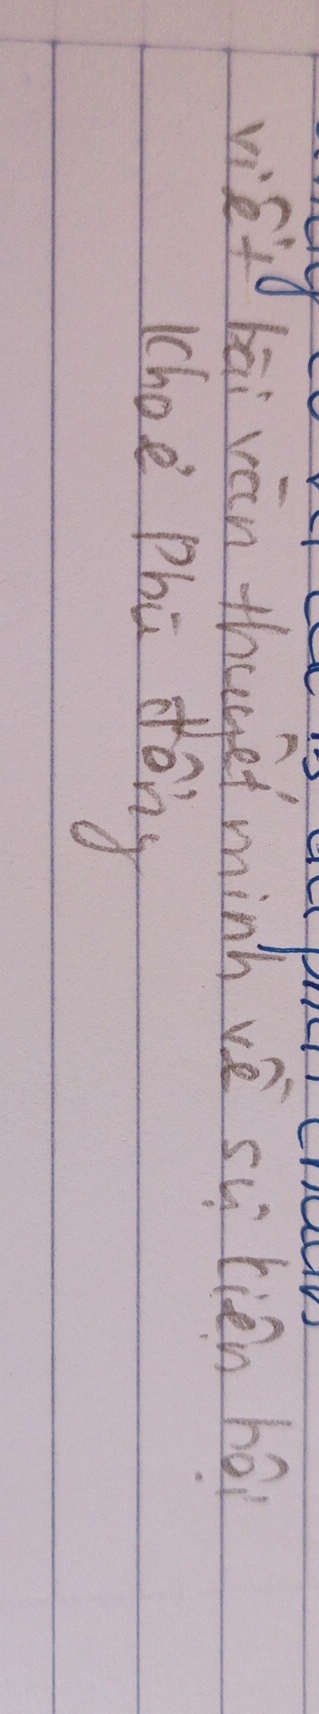 viết bài văn thuyết minh về sự kiện hội
khoẻ Phù Đổng